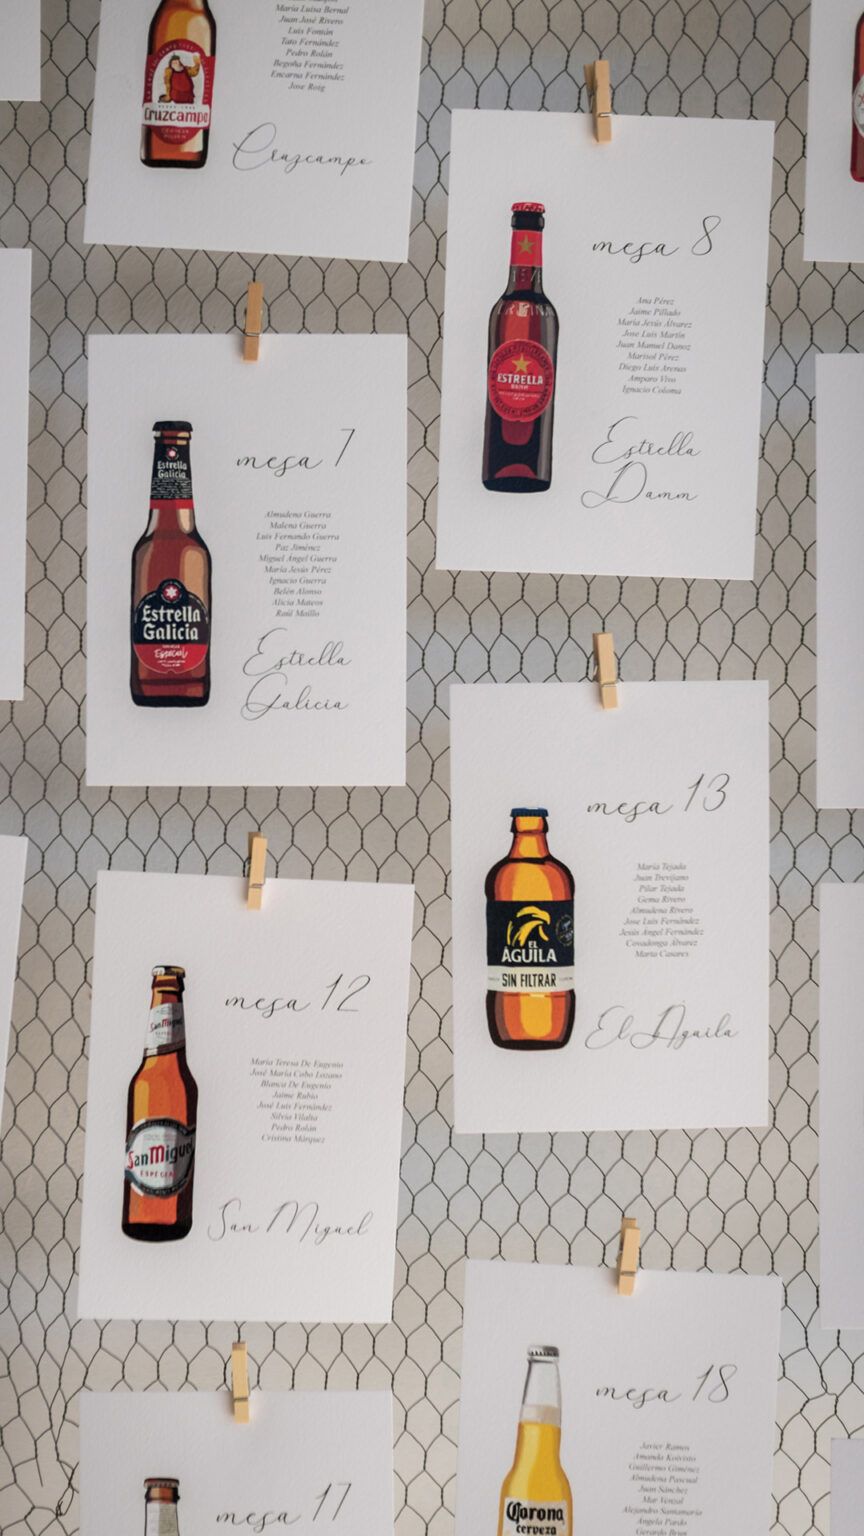 María Luisa Bernal
Juan José Rivero
Luis Fontán
Tato Fernández
Pedro Rolán
Begoña Fernández
Encarna Fernández
Jose Roig
Cruzcampo
Cruzcampo
mesa 8
Ana Pérez
Jaime Pillado
María Jesús Álvarez
Jose Luis Martín
Juan Manuel Danoz
Marisol Pérez
Diego Luis Arenas
Amparo Vivo
Ignacio Coloma
ESTRELLA
DAMM
Estrella
Damm
mesa 7
Almudena Guerra
Malena Guerra
Luis Fernando Guerra
Paz Jiménez
Miguel Ángel Guerra
María Jesús Pérez
Ignacio Guerra
Belén Alonso
Alicia Mateos
Raúl Maíllo
Estrella
Galicia
Estrella
Galicia
Especial
Estrella
Galicia
mesa 13
María Tejada
Juan Trevijano
Pilar Tejada
Gema Rivero
Almudena Rivero
Jose Luis Fernández
Jesús Ángel Fernández
Covadonga Álvarez
Marta Casares
EL
ÁGUILA
SIN FILTRAR
El Águila
mesa 12
María Teresa De Eugenio
José María Cobo Lozano
Blanca De Eugenio
Jaime Rubio
José Luis Fernández
Silvia Vilalta
Pedro Rolán
Cristina Márquez
San Miguel
San Miguel
ESPECIAL
San Miguel
mesa 18
Javier Ramos
Amanda Koivisto
Guillermo Giménez
Almudena Pascual
Juan Sánchez
Mar Venzal
Alejandro Santamaría
Ángela Pardo
Gerardo Bron
Corona
cerveza
mesa 17